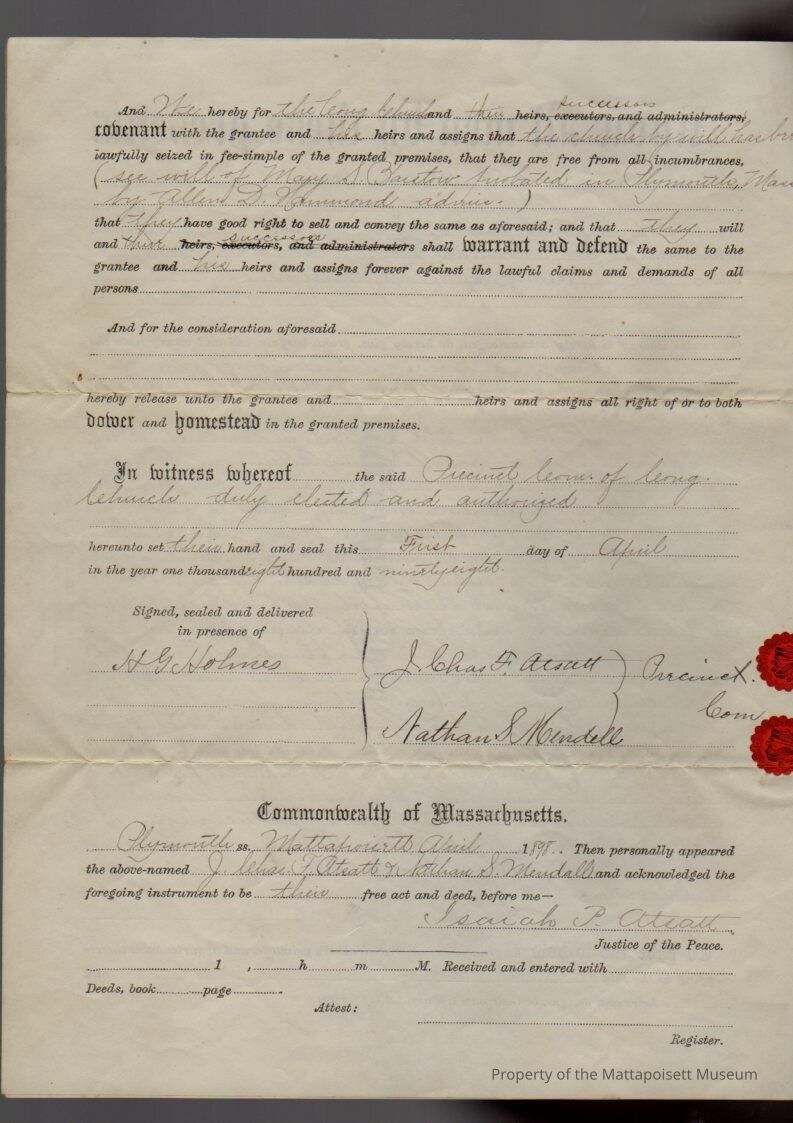 successors
And We hereby for the Cong Church and their heirs, executors, and administrators,
covenant with the grantee and his heirs and assigns that the church by will has
lawfully seized in fee-simple of the granted premises, that they are free from all incumbrances,
(see will of Mary S. Barstow probated in Plymouth, Mass
by Allen D. Hammond )
that they have good right to sell and convey the same as aforesaid; and that they will
successors
and their heirs, executors, and administrators shall warrant and defend the same to the
grantee and his heirs and assigns forever against the lawful claims and demands of all
persons
And for the consideration aforesaid
hereby release unto the grantee and heirs and assigns all right of or to both
dower and homestead in the granted premises.
In witness whereof the said Precinct Com. of Cong.
Church duly elected and authorized
hereunto set their hand and seal this First day of April
in the year one thousand eight hundred and ninety eight.
Signed, sealed and delivered
in presence of
H G Holmes
J. Chas F. Atsatt ) Precinct.
Com
Nathan S. Mendell
Commonwealth of Massachusetts.
Plymouth ss. Mattapoisett April 1898. Then personally appeared
the above-named J. Chas. F. Atsatt & Nathan S. Mendall and acknowledged the
foregoing instrument to be their free act and deed, before me—
Isaiah P. Atsatt
Justice of the Peace.
1 , h m M. Received and entered with
Deeds, book page
Attest:
Register.
Property of the Mattapoisett Museum